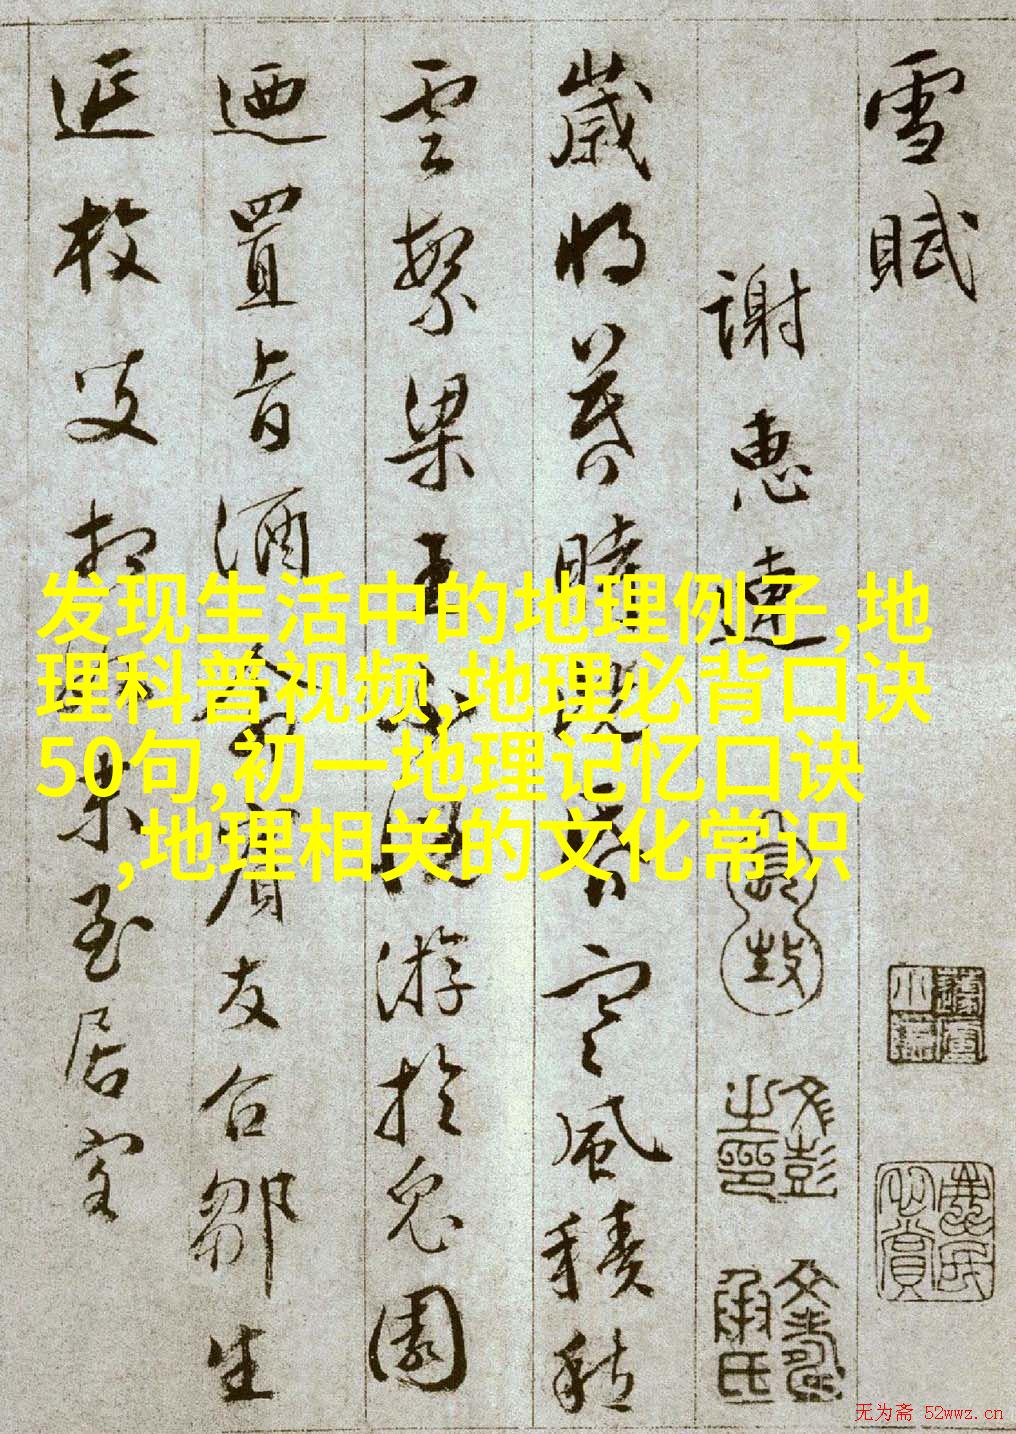 雪賦
謝惠連
歲將暮時既昏寒風積愁
雲繁梁王不悅游於兔園
迺置旨酒命賓友召鄒生
延枚叟相如末至居客
发现生活中的地理例子,地
理科普视频,地理必背口诀
50句,初一地理记忆口诀
,地理相关的文化常识
文彭之印
文壽承氏
无为斋 52wwz.cn